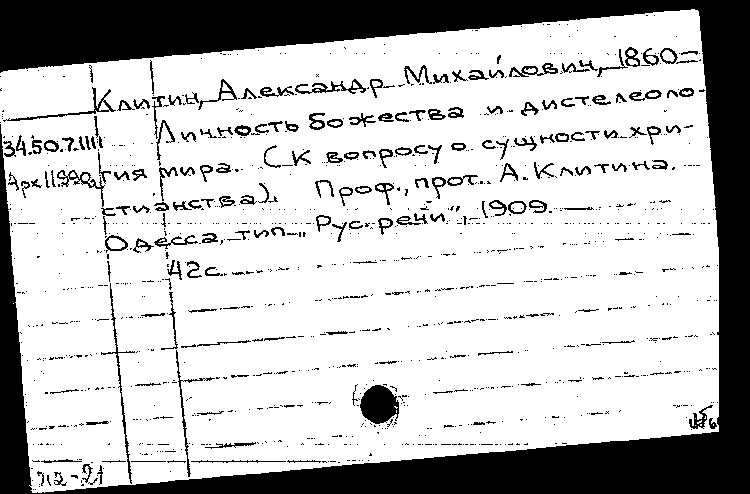 Клитин, Александр Михайлович, 1860-
34.50.7.111 Личность божества и дистелеоло-
Арх11990а гия мира. (К вопросу о сущности хри-
стианства). Проф., прот. А. Клитина.
Одесса, тип. „Рус. речи", 1909.
42с.
712-21